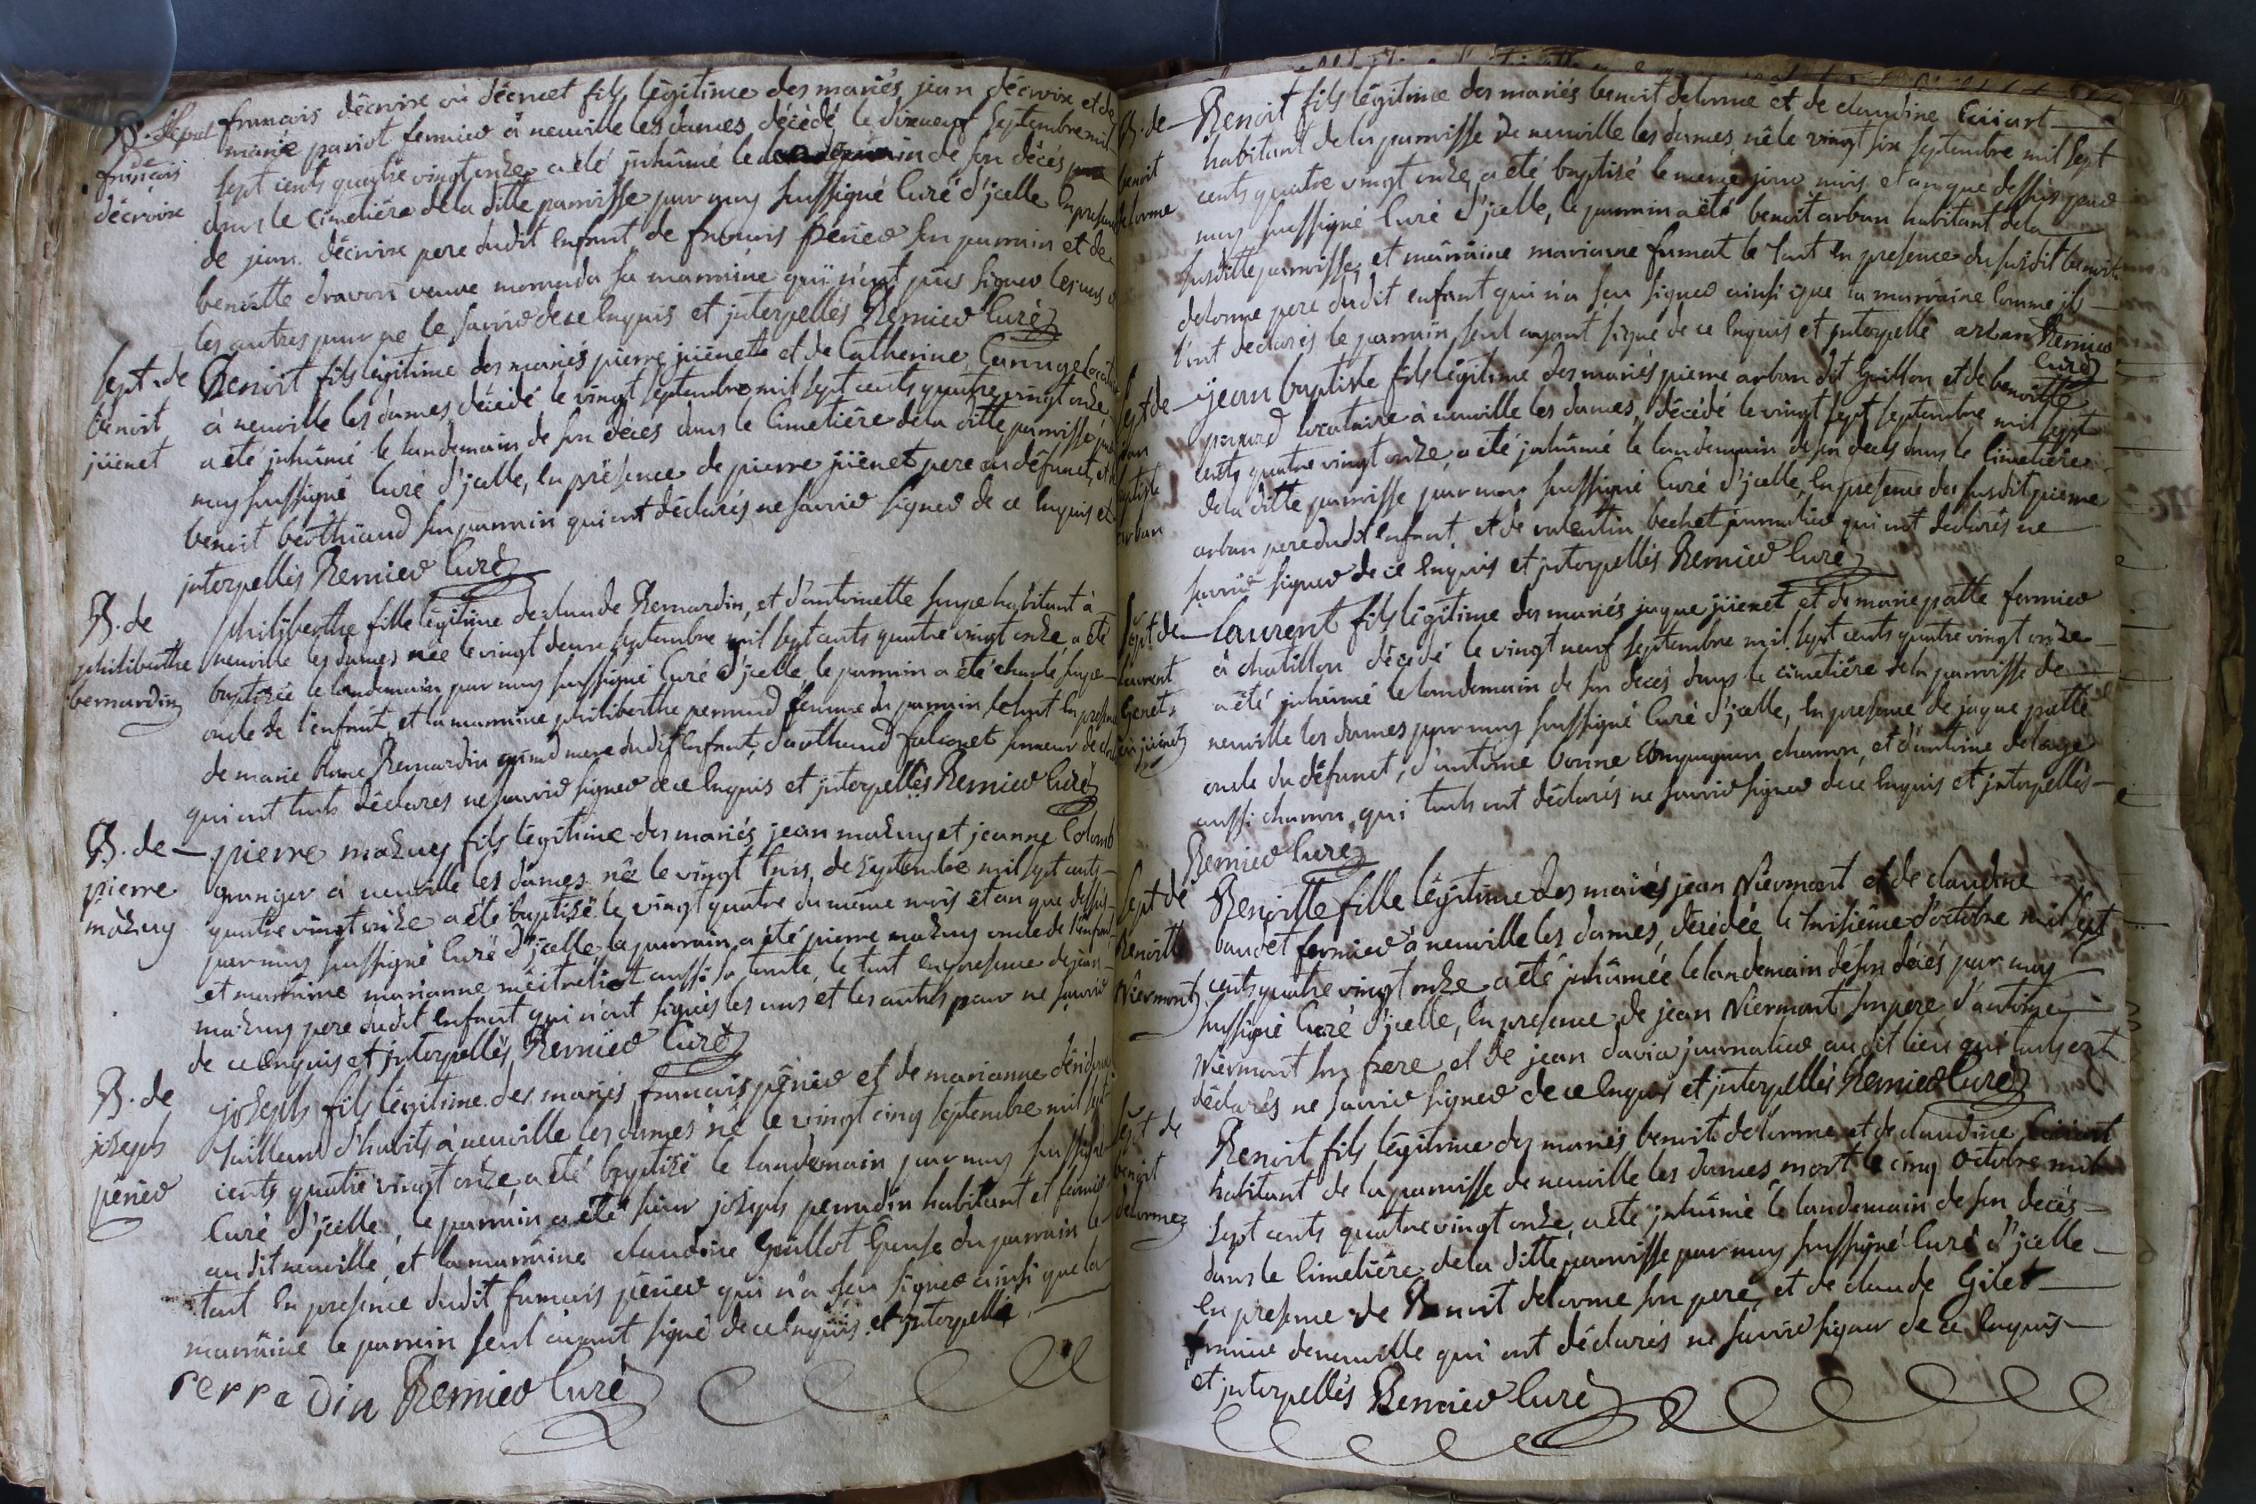 B. Sepul
de
francois
décroixe
francois décroixe ou décruet fils légitime des mariés jean décroixe et de
marie pariot fermier à neuville les dames décédé le dixneuf Septembre mil
sept cents quatre vingt onze a été inhumé le landemain de son décés
dans le Cimetiére de la ditte parroisse par moy soussigné Curé d'jcelle En presence
de jean décroixe pere dudit enfant de francois périer son parrain et de
benoitte dravon veuve sa marraine qui n'ont pus signer les uns et
les autres pour ne le savoir de ce Enquis et jnterpellés Remier Curé
Sept. de
benoit
jüenet
Benoit fils légitime des mariés pierre jüenet et de Catherine
à neuville les dames décédé le vingt septembre mil sept cents quatre vingt onze
a été jnhumé le landemain de son décés dans le Cimetiére de la ditte parroisse par
moy soussigné Curé d'jcelle, En présence de pierre jüenet pere du défunct, et de
benoit berthiaud son parrain qui ont déclarés ne savoir signer de ce Enquis et
jnterpellés Remier Curé
B. de
philiberthe
bernardin
philiberthe fille légitime de claude Bernardin, et d'antoinette habitant à
neuville les dames née le vingt deux septembre mil sept cents quatre vingt onze, a été
baptisée le landemain par moy soussigné Curé d'jcelle, le parrain a été charle
oncle de l'enfant, et la marraine philiberthe perraud femme du parrain le tout En presence
de marie Bernardin grand mere dudit Enfant, falconet
qui ont touts déclarés ne savoir signer de ce Enquis et jnterpellés Remier Curé
B. de
pierre
mazuy
pierre mazuy fils légitime des mariés jean mazuy et jeanne Colomb
granger à neuville les dames né le vingt trois, de septembre mil sept cents
quatre vingt onze a été baptisé le vingt quatre du même mois et an que dessus
par moy soussigné Curé d'jcelle, le parrain a été pierre mazuy oncle de l'enfant
et marraine marianne aussi sa tante, le tout en presence de jean
mazuy pere dudit enfant qui n'ont signés les uns et les autres pour ne savoir
de ce Enquis et jnterpellés Remier Curé
B. de
jozeph
périer
jozeph fils légitime des mariés francois périer et de marianne
tailleur d'habits à neuville les dames né le vingt cinq septembre mil sept
cents quatre vingt onze a été baptizé le landemain par moy soussigné
Curé d'jcelle, le parrain a été sieur jozeph perradin habitant et fermier
audit neuville, et la marraine claudine Guillot Epouse du parrain le
tout En presence dudit francois périer qui n'a sçu signer ainsi que la
marraine le parrain seul ayant signé de ce Enquis et jnterpellé
perradin Remier Curé
B. de
benoit
delorme
Benoit fils légitime des mariés benoit delorme et de claudine
habitant de la parroisse de neuville les dames, né le vingt six septembre mil sept
cents quatre vingt onze, a été baptisé le meme jour mois et an que dessus par
moy soussigné Curé d'jcelle, le parrain a été benoit arban habitant de la
susditte parroisse, et marraine marianne fumat le tout En presence du susdit benoit
delorme pere dudit enfant qui n'a sçu signer ainsi que la marraine Comme jls
l'ont declarés le parrain seul ayant signé de ce Enquis et jnterpellé arban Remier
Curé
Sept de
jean
baptiste
arban
jean baptiste fils légitime des mariés pierre arban dit Guillon et de benoitte
locataire à neuville les dames, décédé le vingt sept septembre mil sept
cents quatre vingt onze, a été jnhumé le landemain de son decés dans le Cimetiére
de la ditte parroisse par moy soussigné Curé d'jcelle, En presence du susdit pierre
arban pere dudit Enfant et de valentin bechet journalier qui ont déclarés ne
savoir signer de ce Enquis et jnterpellés Remier Curé
Sept. de
laurent
jüenet
Laurent fils légitime des mariés jaque jüenet et de marie patte fermier
à chatillon décédé le vingt neuf septembre mil sept cents quatre vingt onze
a été jnhumé le landemain de son decés dans le cimetiére de la parroisse de
neuville les dames par moy soussigné Curé d'jcelle, En presence de jaque patte
oncle du défunct, d'antoine bonne charon, et d'antoine delage
aussi charon, qui touts ont déclarés ne savoir signer de ce Enquis et jnterpellés
Remier Curé
Sept de
Benoitte
Niermont
Benoitte fille légitime des mariés jean Niermont et de claudine
baudet fermier à neuville les dames, décédée le troisiéme d'octobre mil sept
cents quatre vingt onze a été jnhumée le landemain de son décés par moy
soussigné Curé d'jcelle, En presence de jean Niermont son pere d'antoine
Niermont son frere et de jean davia journalier audit lieu qui touts ont
déclarés ne savoir signer de ce Enquis et jnterpellés Remier Curé
Sept de
benoit
delorme
Benoit fils légitime des mariés benoit delorme et de claudine
habitant de la parroisse de neuville les dames mort le cinq Octobre mil
Sept cents quatre vingt onze, a été jnhumé le landemain de son decés
dans le Cimetiére de la ditte parroisse par moy soussigné Curé d'jcelle
En presence de Benoit delorme son peré, et de claude Gilet
de neuville qui ont déclarés ne savoir signer de ce Enquis
et jnterpellés Remier Curé